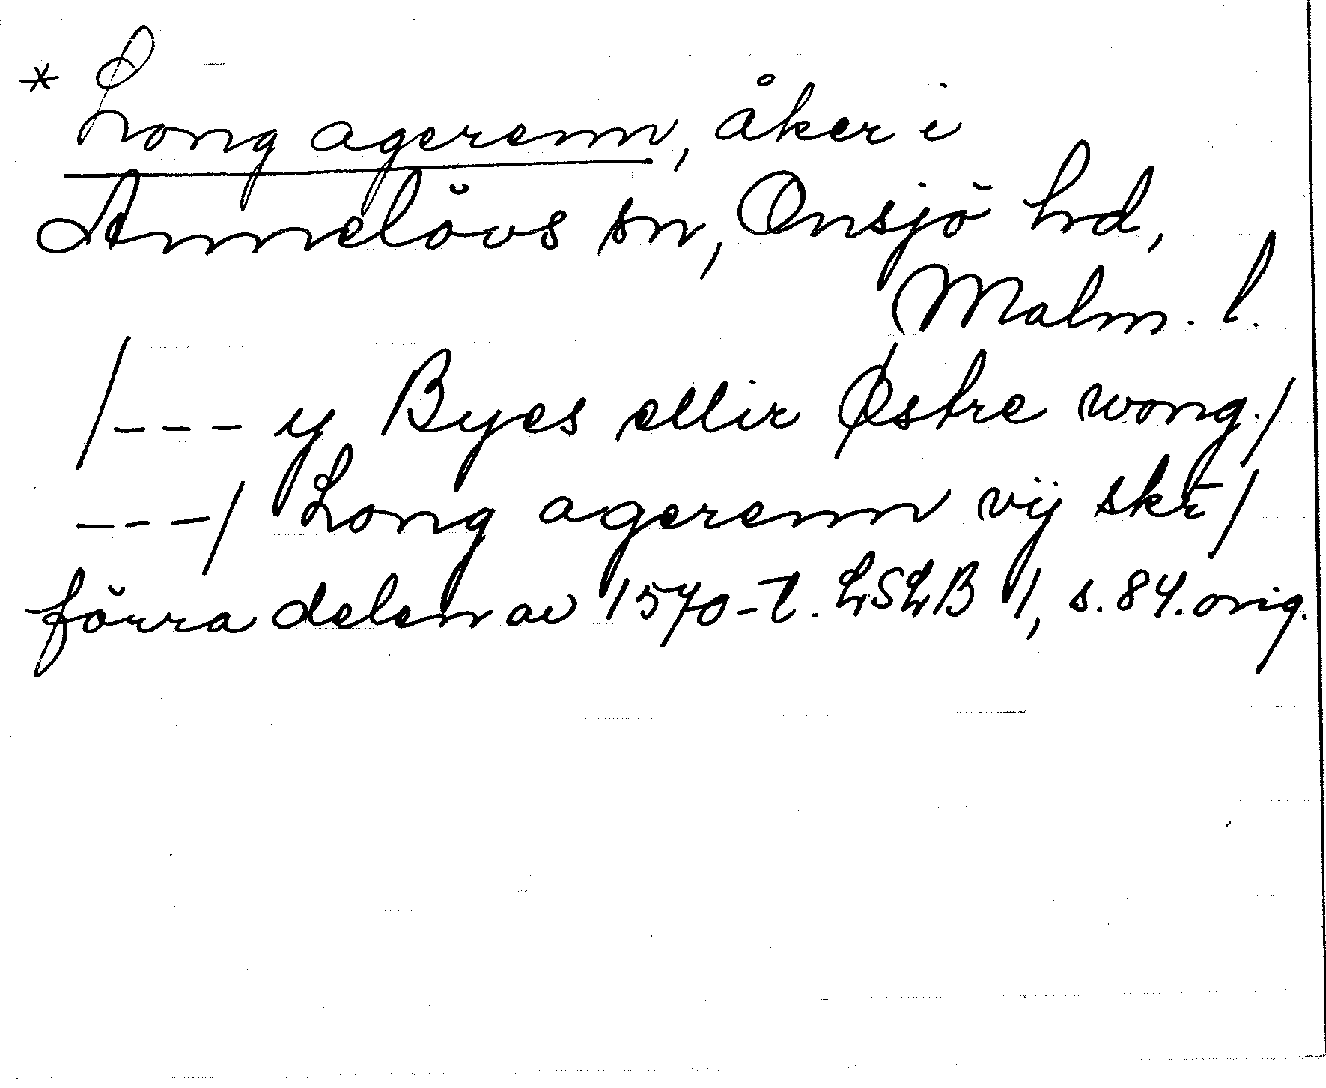 * Long agerenn, åker i
Annelövs sn, Onsjö hd,
Malm. l.
/--- y Byes ellir Østre wong./
---/ Long agerenn vij skr̄/
förra delen av 1570-t. LSLB 1, s. 84. orig.